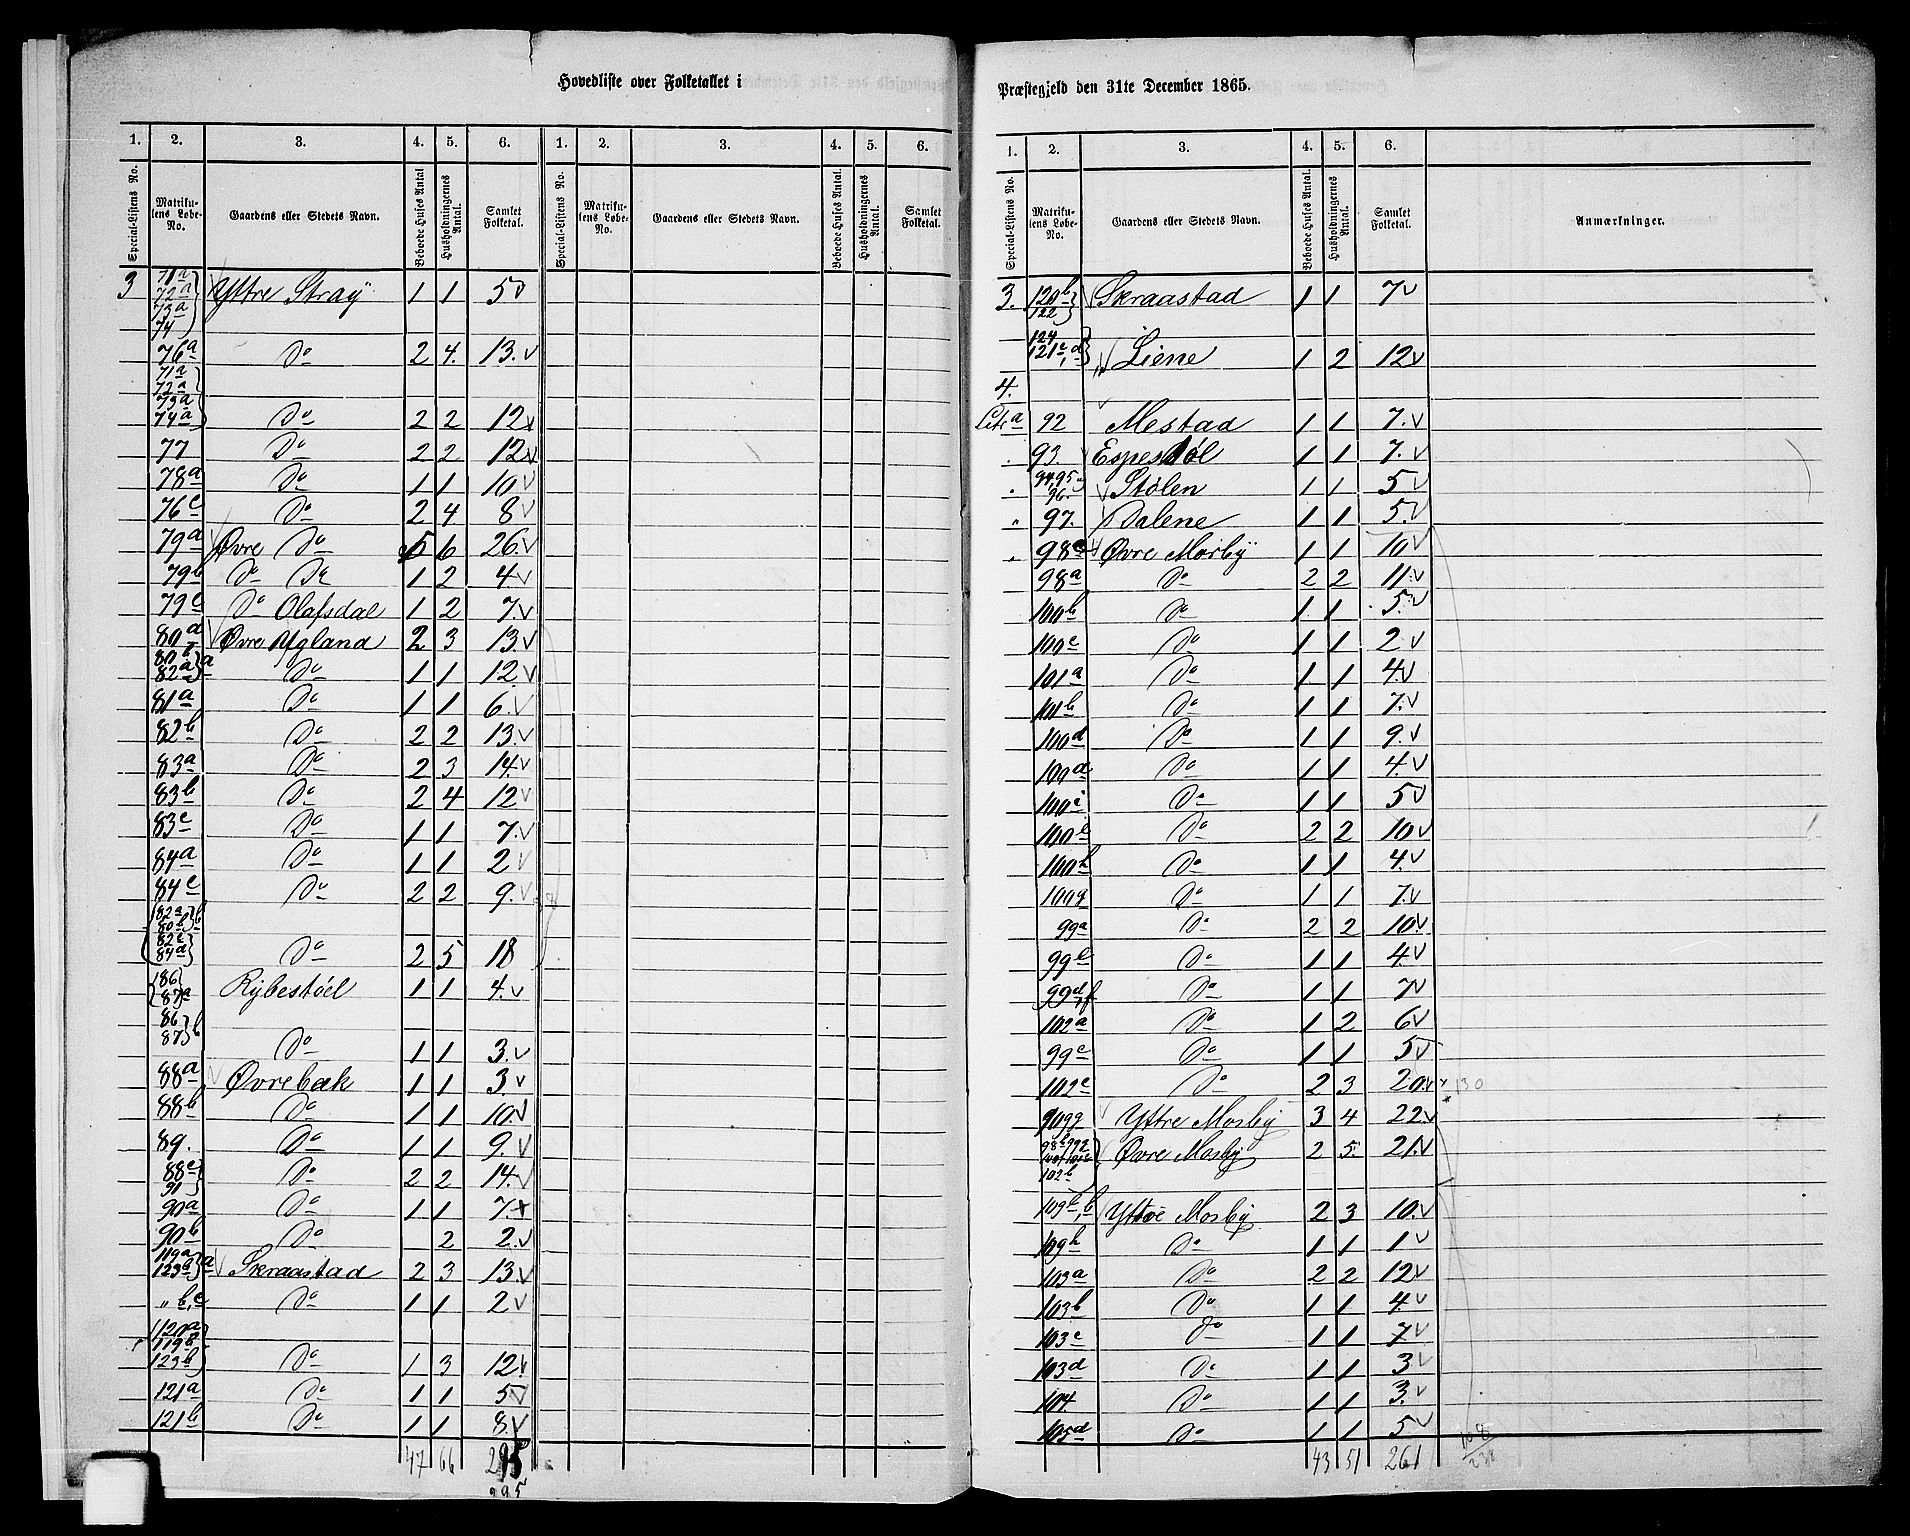 Hovedliste over Folketallet i
1. 2. 3. 4. 5. 6. 1. 2. 3. 4. 5. 6.
Special-Listens No. Matrikulens Løbe-No. Gaardens eller Stedets Navn. Beboede Huses Antal Husholdningernes Antal. Samlet Folketal. Special-Listens No. Matrikulens Løbe-No. Gaardens eller Stedets Navn. Beboede Huses Antal. Husholdningernes Antal. Samlet Folketal.
3 71a 72a 73a 74 Yttre Stray 1 1 5
76a Do 2 4. 13.
71a 72a 73a 74a Do 2 2 12
77 Do 2 2 12
78a Do 1 1 10
76c Do 2 4 8
79a Øvre Do 5 6 26.
79b Do Do 1 2 4
79c Do Olafsdal 1 2 7.
80a Øvre Ugland 2 3 13
82a a Do 1 1 12
81a Do 1 1 6.
82b Do 2 2 13.
83a Do 2 3 14.
83b Do 2 4 12
83c Do 1 1 7.
84a Do 1 1 2
84c Do 2 2 9.
82a 80b b 82c 84d Do 2 5 18
86 87a Rybestöel 1 1 4.
86 87 b Do 1 1 3.
88a Øvrebæk 1 1 3.
88b Do 1 1 10.
89. Do 1 1 9.
88c 91 Do 2 2 14.
90a Do 1 1 7.
90b Do 2 2.
119a 123a a Skraastad 2 3 13
" b,c Do 1 1 2
120a 119b 123b Do 1 3 12.
121a Do 1 1 5
121b Do 1 1 8.
47 66 295
295
Præstegjeld den 31te December 1865.
1. 2. 3. 4. 5. 6.
Special-Listens No. Matrikulens Løbe-No. Gaardens eller Stedets Navn. Beboede Huses Antal. Husholdningernes Antal. Samlet Folketal. Anmærkninger.
3. 120b 122 Skraastad 1 1 7
124 121c,d Liene 1 2 12
4.
Litr a 92 Mestad 1 1 7.
93. Espestøl 1 1 7.
94,95 96. Stölen 1 1 5
" 97. Dalene 1 1 5.
98c Øvre Mosby 1 1 10
98a Do 2 2 11.
100b Do 1. 1 5.
100c Do 1 1 2
101a Do 1 1 4.
101b Do 1 1 7.
100d Do 1 1 9.
100a Do 1 1 4.
100i Do 1 1 5
100e Do 2 2 10
100h Do 1 1 4.
100g Do 1 1 7.
99a Do 2 2 10.
99b Do 1 1 4.
99d,f Do 1 1 7
102a Do 1 2 6
99c Do 1 1 5
102c Do 2 3 20. 130
Yttre Mosby 3 4 22.
102b Øvre Mosby 2 5. 21.
Yttre Mosby 2 3 10.
109h Do 1 1 1
103a Do 2 2 12
103b Do 1 1 4.
103c Do 1 1 7
103d Do 1 1 3
104. Do 1 1 3.
105d Do 1 1 5
43 51 261
108
238